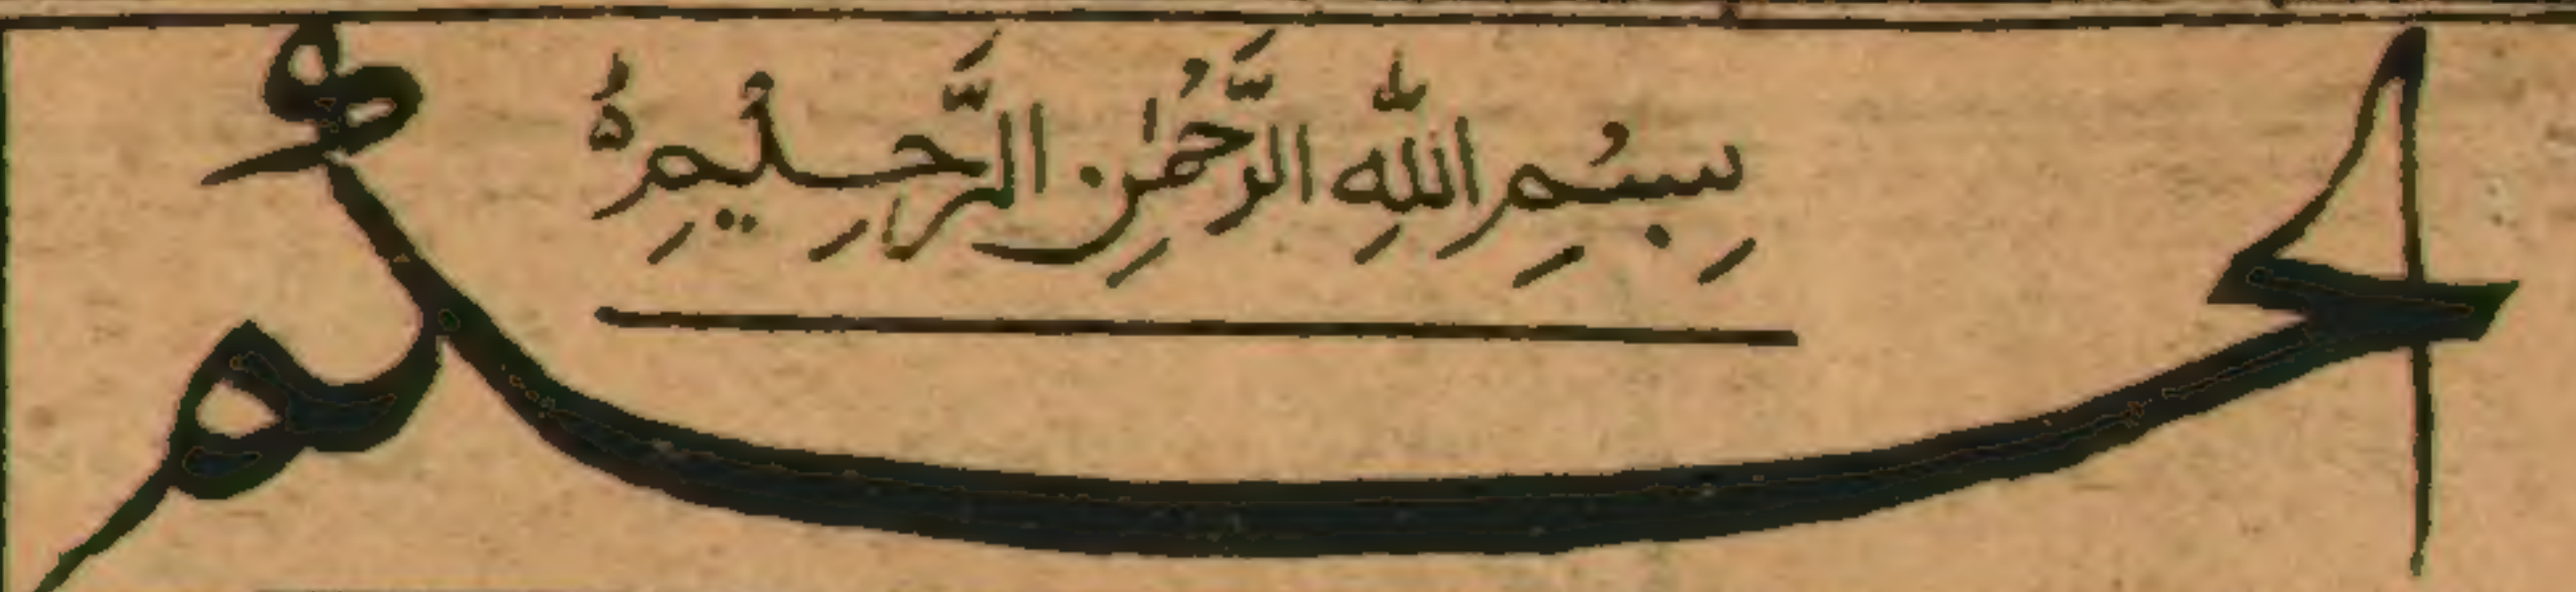 بِسْمِ اللّٰهِ الرَّحْمٰنِ الرَّحِيْمِ
الحکم